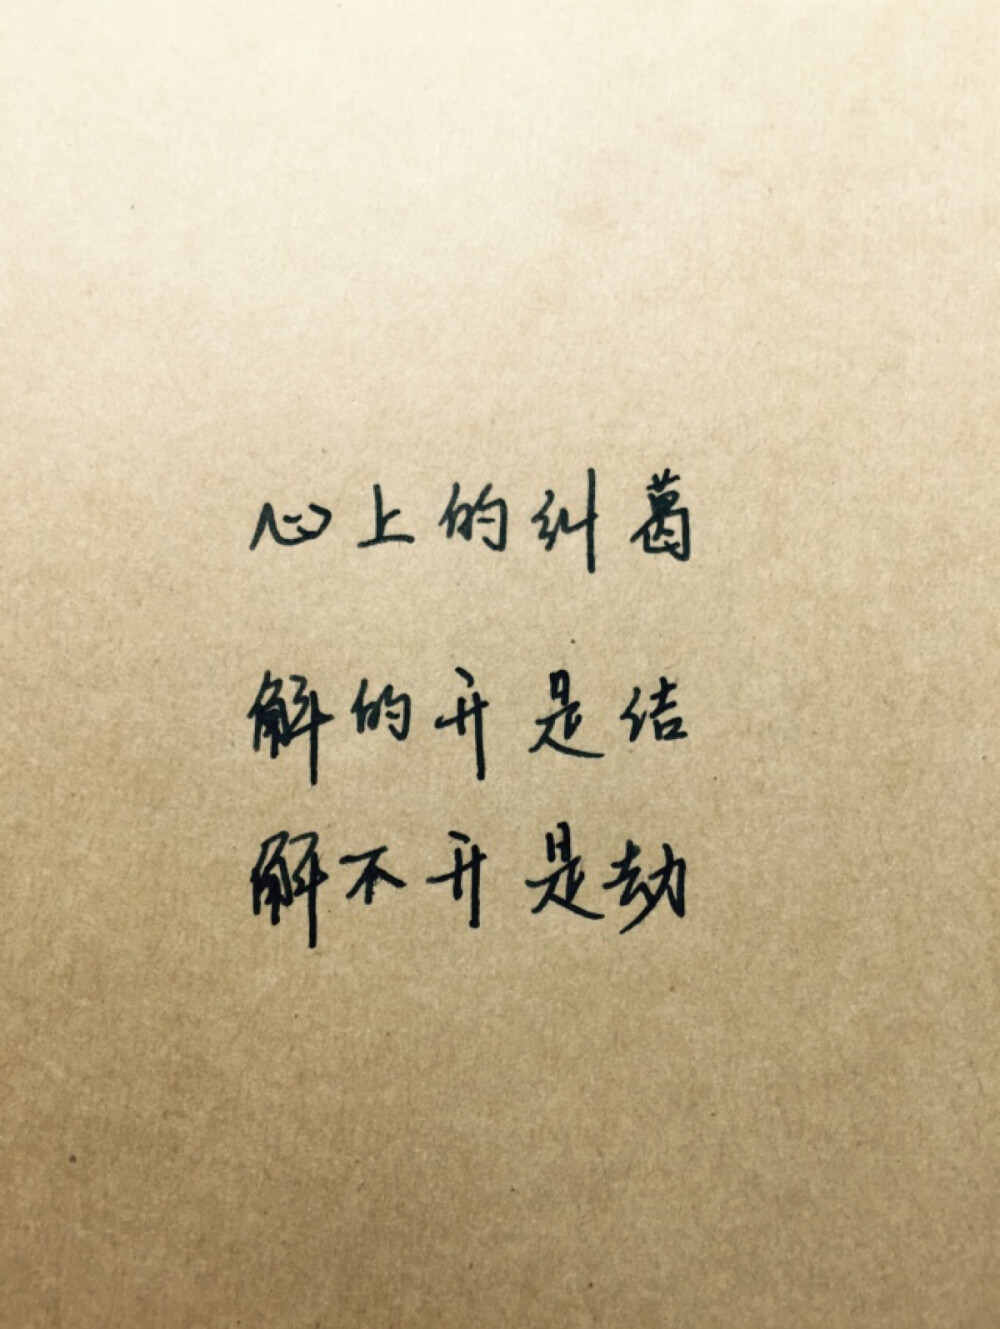 心上的纠葛
解的开是结
解不开是劫